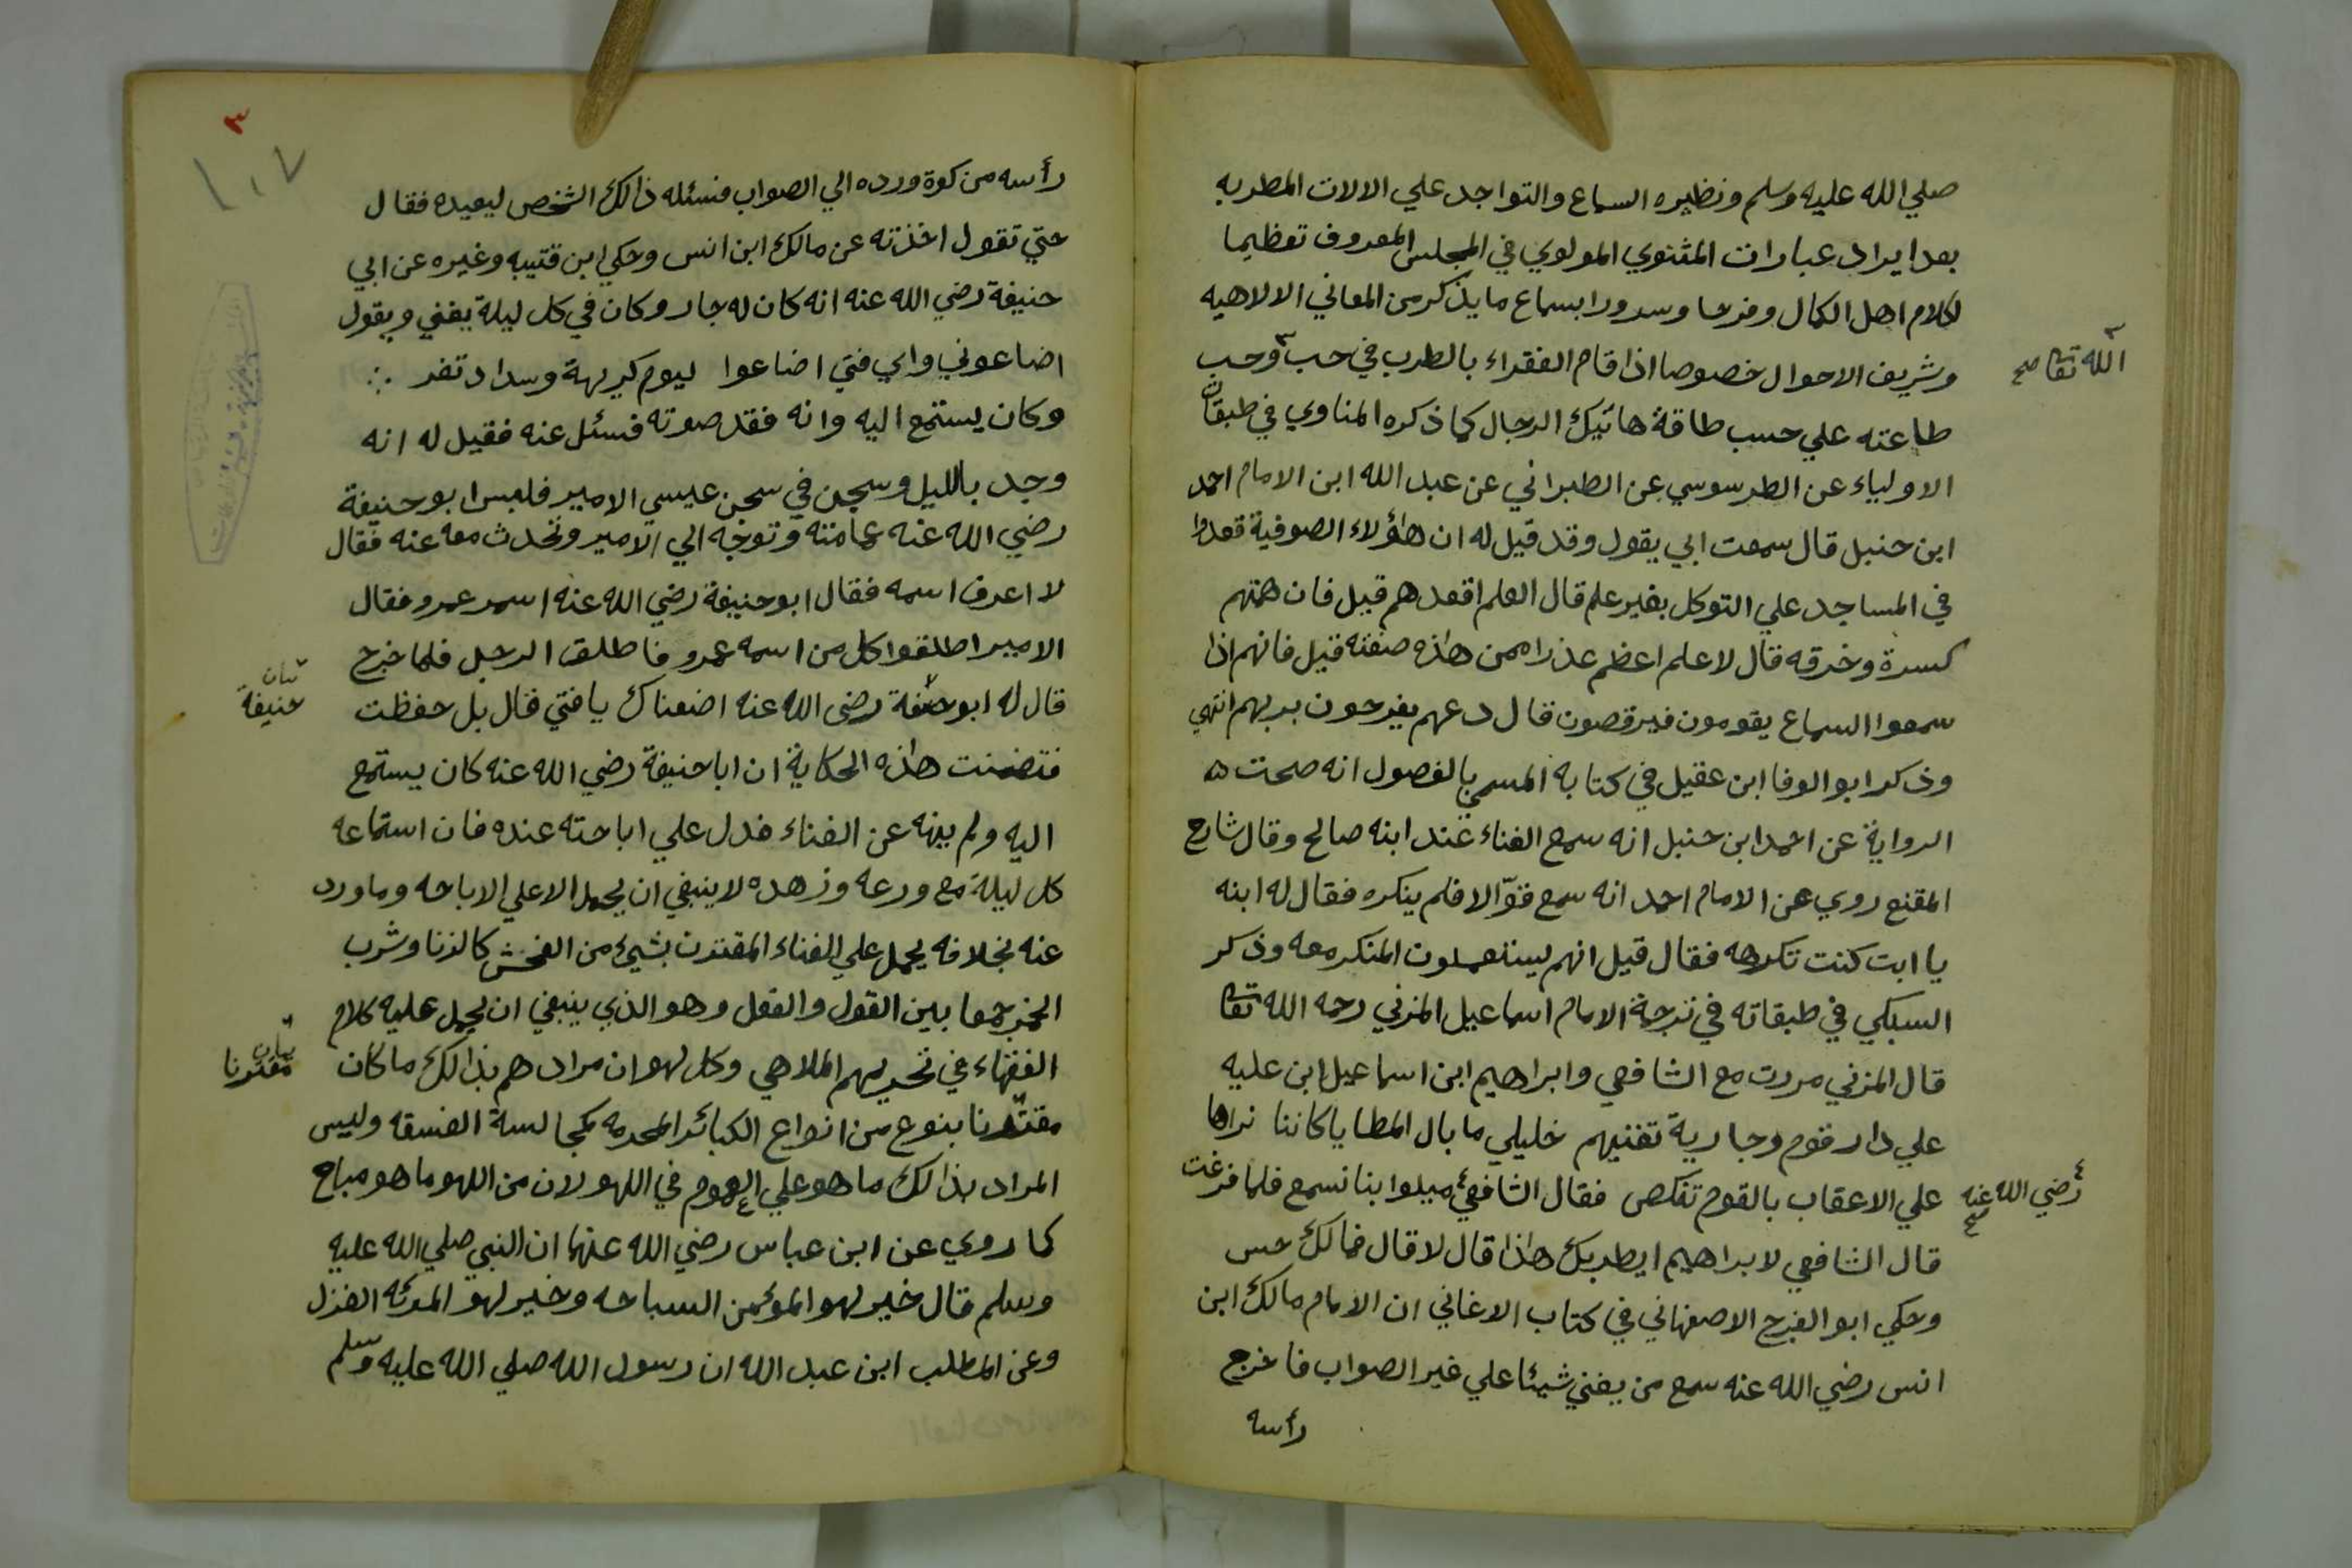 صلي الله عليه وسلم ونظيره السماع والتواجد علي الالات المطربه
بعد ايراد عبارات المثنوي المولوي في المجلس المعروف تعظيما
لكلام اهل الكمال وفرحا وسرورا بسماع ما يذكر من المعاني الالاهيه
وشريف الاحوال خصوصا اذا قام الفقراء بالطرب في حب وحب
الله تعا صح
طاعته علي حسب طاقة هاتيك الرجال كما ذكره المناوي في طبقات
الاولياء عن الطرسوسي عن الطبراني عن عبد الله ابن الامام احمد
ابن حنبل قال سمعت ابي يقول وقد قيل له ان هاؤلاء الصوفية قعدوا
في المساجد علي التوكل بغير علم قال العلم اقعدهم قيل فان همتهم
كسرة وخرقه قال لا علم اعظم عذرا ممن هاذه صفته قيل فانهم اذا
سمعوا السماع يقومون فيرقصون قال دعهم يفرحون بربهم انتهي
وذكر ابو الوفا ابن عقيل في كتابه المسمي بالفصول انه صحت
الرواية عن احمد ابن حنبل انه سمع الغناء عند ابنه صالح وقال شارح
المقنع روي عن الامام احمد انه سمع قوّالا فلم ينكره فقال له ابنه
يا ابت كنت تكرهه فقال قيل انهم يستعملون المنكر معه وذكر
السبكي في طبقاته في ترجمة الامام اسماعيل المزني رحمه الله تعا
قال المزني مررت مع الشافعي وابراهيم ابن اسماعيل ابن عليه
علي دار قوم وجارية تغنيهم خليلي ما بال المطايا كاننا نراها
علي الاعقاب بالقوم تنكص فقال الشافعي ميلوا بنا نسمع فلما فرغت
رضي الله عنه صح
قال الشافعي لابراهيم ايطربك هاذا قال لا قال فمالك حس
وحكي ابو الفرج الاصفهاني في كتاب الاغاني ان الامام مالك ابن
انس رضي الله عنه سمع من يغني شيئا علي غير الصواب فاخرج
رأسه
٣
١٠٧
رأسه من كوة ورده الي الصواب فسئله ذالك الشخص ليعيده فقال
حتي تقول اخذته عن مالك ابن انس وحكي ابن قتيبه وغيره عن ابي
حنيفة رضي الله عنه انه كان له جار وكان في كل ليلة يغني ويقول
اضاعوني واي فتي اضاعوا ليوم كريهة وسداد تغر ؞
وكان يستمع اليه وانه فقد صوته فسئل عنه فقيل له انه
وجد بالليل وسجن في سجن عيسي الامير فلبس ابو حنيفة
رضي الله عنه عمامته وتوجه الي الامير وتحدث معه عنه فقال
لا اعرف اسمه فقال ابو حنيفة رضي الله عنه اسمه عمرو فقال
الامير اطلقوا كل من اسمه عمرو فاطلق الرجل فلما خرج
قال له ابو حنيفة رضي الله عنه اضعناك يا فتي قال بل حفظت
بيان
حنيفة
فتضمنت هاذه الحكاية ان ابا حنيفة رضي الله عنه كان يستمع
اليه ولم ينهه عن الغناء فدل علي اباحته عنده فان استماعه
كل ليلة مع ورعه وزهده لا ينبغي ان يحمل الا علي الاباحه وما ورد
عنه بخلافه يحمل علي الغناء المقترن بشيئ من الفحش كالزنا وشرب
الخمر جمعا بين القول والفعل وهو الذي ينبغي ان يحمل عليه كلام
الفقهاء في تحريمهم الملاهي وكل لهو ان مرادهم بذالك ما كان
بيان
مقترنا
مقترنا بنوع من انواع الكبائر المحرمه كمجالسة الفسقه وليس
المراد بذالك ما هو علي العموم في اللهو لان من اللهو ما هو مباح
كما روي عن ابن عباس رضي الله عنهما ان النبي صلي الله عليه
وسلم قال خير لهو المؤمن السباحه وخير لهو المرئه الغزل
وعن المطلب ابن عبد الله ان رسول الله صلي الله عليه وسلم